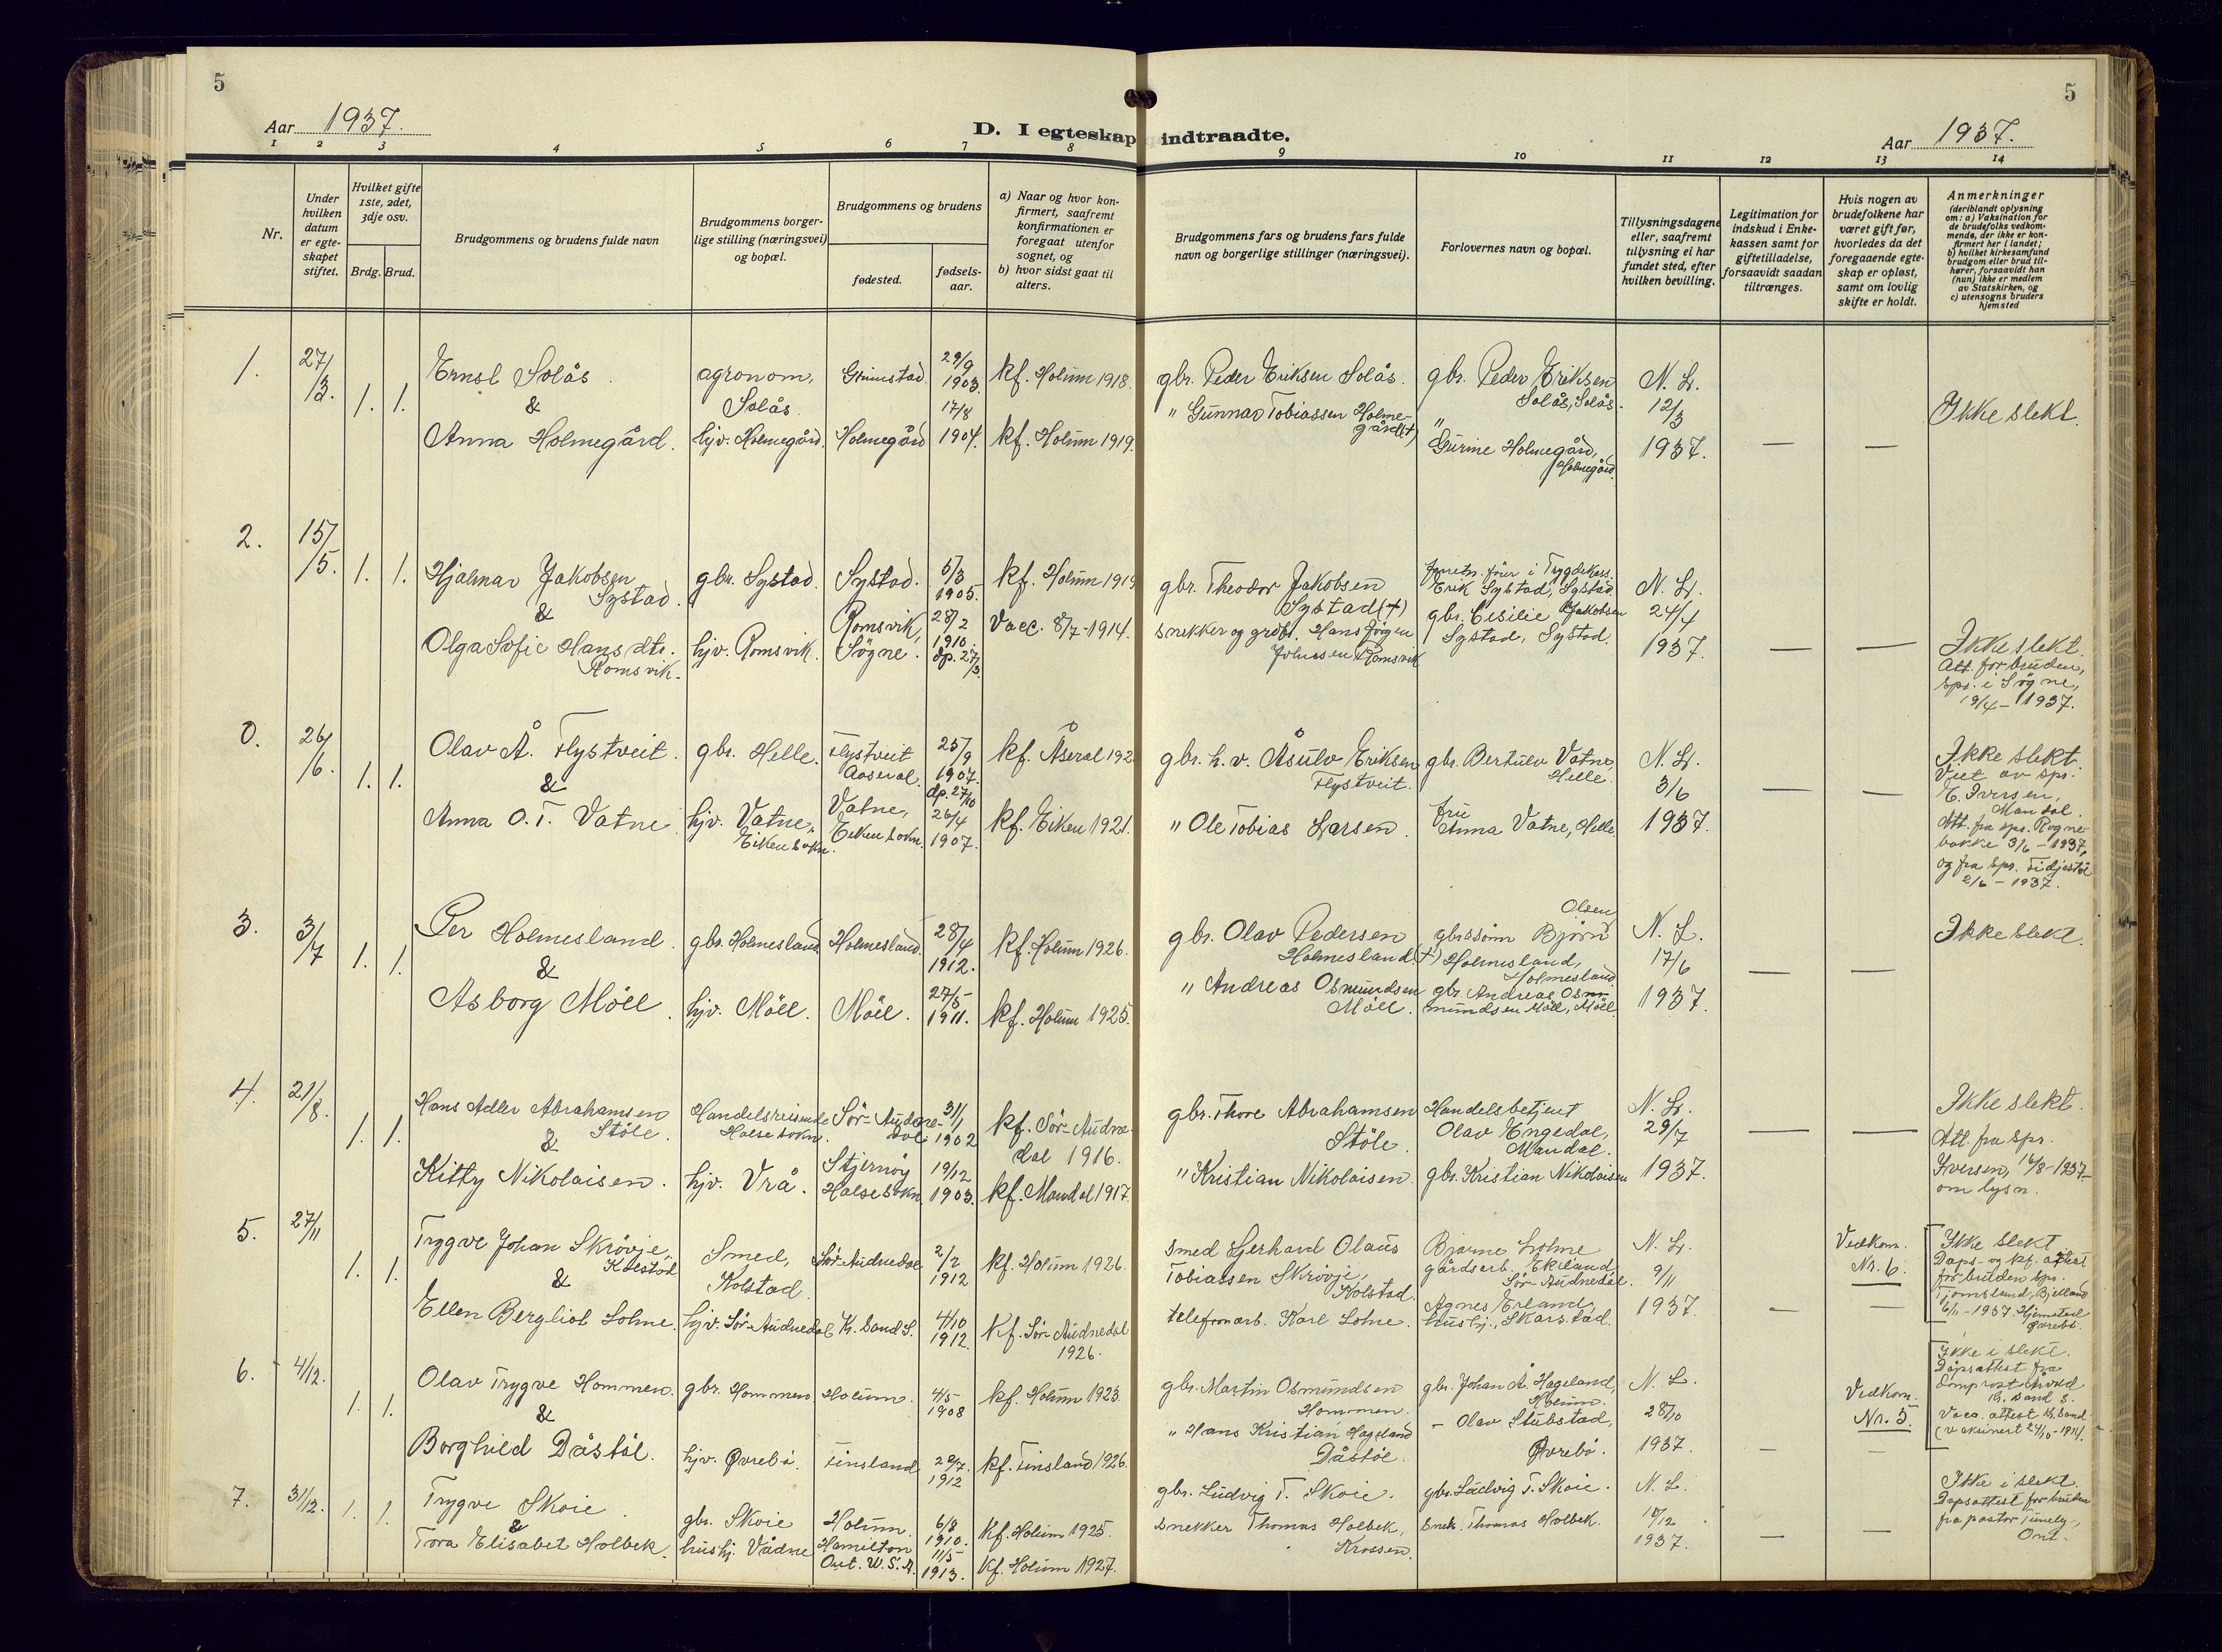 5
5
Aar 1937.
D. I egteskap indtraadte.
Aar 1937.
1 2 3 4 5 6 7 8 9 10 11 12 13 14
Nr.
Under hvilken datum er egte-skapet stiftet.
Hvilket gifte 1ste, 2det, 3dje osv.
Brdg. Brud.
Brudgommens og brudens fulde navn
Brudgommens borger-lige stilling (næringsvei) og bopæl.
Brudgommens og brudens
fødested.
fødsels-aar.
a) Naar og hvor kon-firmert, saafremt konfirmationen er foregaat utenfor sognet, og
b) hvor sidst gaat til alters.
Brudgommens fars og brudens fars fulde navn og borgerlige stillinger (næringsvei).
Forlovernes navn og bopæl.
Tillysningsdagene eller, saafremt tillysning ei har fundet sted, efter hvilken bevilling.
Legitimation for indskud i Enke-kassen samt for giftetilladelse, forsaavidt saadan tiltrænges.
Hvis nogen av brudefolkene har været gift før, hvorledes da det foregaaende egte-skap er opløst, samt om lovlig skifte er holdt.
Anmerkninger
(deriblandt oplysning om: a) Vaksination for de brudefolks vedkom-mende, der ikke er kon-firmert her i landet; b) hvilket kirkesamfund brudgom eller brud til-hører, forsaavidt han (hun) ikke er medlem av Statskirken, og c) utensogns bruders hjemsted
1. 27/3. 1. 1.
Ernst Solås.
&
Anna Holmegård.
agronom, Solås.
hjv. Holmegård.
Grimstad.
Holmegård
29/9 1903.
17/8 1904.
kf. Holum 1918.
kf. Holum 1919.
gbr. Peder Eriksen Solås.
" Gunnar Tobiassen Holme-gård(+)
gbr. Peder Eriksen Solås, Solås.
" Gurine Holmegård, Holmegård.
N. L. 12/3 1937.
— —
Ikke slekt.
2. 15/5. 1. 1.
Hjalmar Jakobsen Systad.
&
Olga Sofie Hansdtr. Romsvik.
gbr. Systad.
hjv. Romsvik.
Systad.
Romsvik, Søgne.
5/3 1905.
28/2 1910. dp. 27/3.
kf. Holum 1919
Vacc. 8/7-1914.
gbr. Theodor Jakobsen Systad(+)
snekker og grdbr. Hans Jørgen Johnssen Romsvik
Erik Systad, Systad.
gbr. Cesilie Jakobsen Systad, Systad.
N. L. 24/4 1937.
— —
Ikke slekt.
Att. for bruden, spr. i Søgne, 19/4-1937.
0. 26/6. 1. 1.
Olav Å. Flystveit.
&
Anna O. T. Vatne.
gbr. Helle.
hjv. Vatne, Eiken sokn.
Flystveit Aaseral.
Vatne, Eiken sokn.
25/9 1907. dp. 27/10
26/4 1907.
kf. Åseral 192
kf. Eiken 1921.
gbr. h. v. Åsulv Eriksen Flystveit.
" Ole Tobias Larsen.
gbr. Bertulv Vatne, Helle.
fru Anna Vatne, Helle
N. L. 3/6 1937.
— —
Ikke slekt.
Viet av spr. E. Iversen, Mandal.
Att. fra spr. Rogne-bakke 3/6-1937, og fra spr. Fidjestøl 2/6-1937.
3. 3/7 1. 1.
Per Holmesland.
&
Asborg Møll.
gbr. Holmesland.
hjv. Møll.
Holmesland.
Møll.
28/4 1912.
27/5 1911.
kf. Holum 1926.
kf. Holum 1925.
gbr. Olav Pedersen Holmesland(+)
" Andreas Osmundsen Møll.
gbrssønn Bjørn Olsen Holmesland, Holmesland.
gbr. Andreas Os-mundsen Møll, Møll.
N. L. 17/6 1937.
— —
Ikke slekt.
4. 21/8. 1. 1.
Hans Adler Abrahamsen Støle.
&
Kitty Nikolaisen.
Handelsreisende Halse sokn.
hjv. Vrå.
Sør-Audne-dal
Stjernøy Halse sokn.
31/1 1902
19/12 1903.
kf. Sør-Audne-dal 1916.
kf. Mandal 1917.
gbr. Thore Abrahamsen Støle
" Kristian Nikolaisen.
Handelsbetjent Olav Engedal, Mandal.
gbr. Kristian Nikolaisen
N. L. 29/7 1937.
— —
Ikke slekt.
Att. fra spr. Iversen, 16/8-1937- om lysn.
5. 27/11 1. 1.
Tryggve Johan Skrøvje, Kolstad
&
Ellen Bergliot Lohne.
Smed, Kolstad.
hjv. Sør-Audnedal
Sør-Audnedal
K. Sand S.
2/2 1912
4/10 1912.
kf. Holum 1926.
kf. Sør-Audnedal 1926.
smed Gerhard Olaus Tobiassen Skrøvje, Kolstad.
telefonarb. Karl Lohne.
Bjarne Lohne gårdsarb. Ekeland, Sør-Audnedal.
Agnes Erland, hushj., Skarstad.
N. L. 9/11 1937.
— —
Vedkom. Nr. 6.
Ikke slekt
Daps- og kf. attest for bruden spr. Tjomsland, Bjelland 6/11-1937. Hjemsted Øvrebø.
6. 4/12. 1. 1.
Olav Trygve Hommen.
&
Borghild Dåstøl.
gbr. Hommen
hjv. Øvrebø.
Holum.
Finsland
4/5 1908
29/7. 1912
kf. Holum 1923.
kf. Finsland 1926.
gbr. Martin Osmundsen Hommen.
" Hans Kristian Hageland Dåstøl.
gbr. Johan Å. Hageland, Holum.
- Olav Stubstad, Øvrebø.
N. L. 28/10 1937.
— —
Vedkom. Nr. 5.
Ikke i slekt.
Dåpsattest fra
Kr. sand S.
Vacc. attest Kr. Sand (vaksinert 24/10-1914.
7. 31/12. 1. 1.
Trygve Skoie.
&
Tora Elisabet Holbek.
gbr. Skoie
hushj. Vadne
Holum.
Hamilton Ont. W. S. A.
6/8 1910.
11/5 1913.
kf. Holum 1925.
kf. Holum 1927.
gbr. Ludvig T. Skoie.
snekker Thomas Holbek, Krossen.
gbr. Ludvig T. Skoie.
snek. Thomas Holbek.
N. L. 10/12 1937.
— —
Ikke i slekt.
Dåpsattest for bruden fra pastor
Ont.